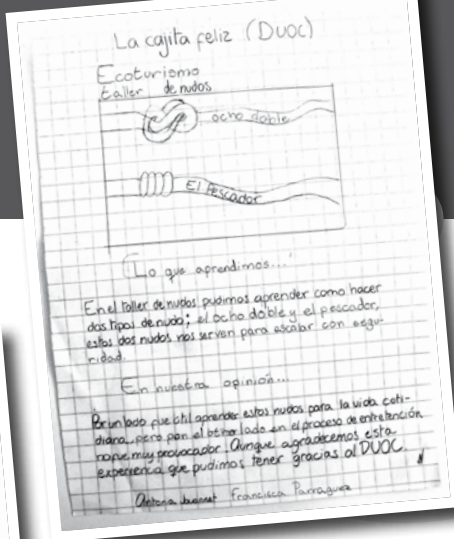 La cajita feliz (DUOC)
Ecoturismo
taller de nudos
ocho doble
El Pescador
"Lo que aprendimos..."
En el taller de nudos pudimos aprender como hacer
dos tipos de nudo; el ocho doble y el pescador,
estos dos nudos nos serven para escalar con segu-
ridad.
En nuestra opinión...
Por un lado fue útil aprender estos nudos para la vida coti-
diana, pero por el otro lado en el proceso de entretención
no fue muy provocador. Aunque agradecemos esta
experiencia que pudimos tener gracias al DUOC.
Antonia Francisca Parraguez